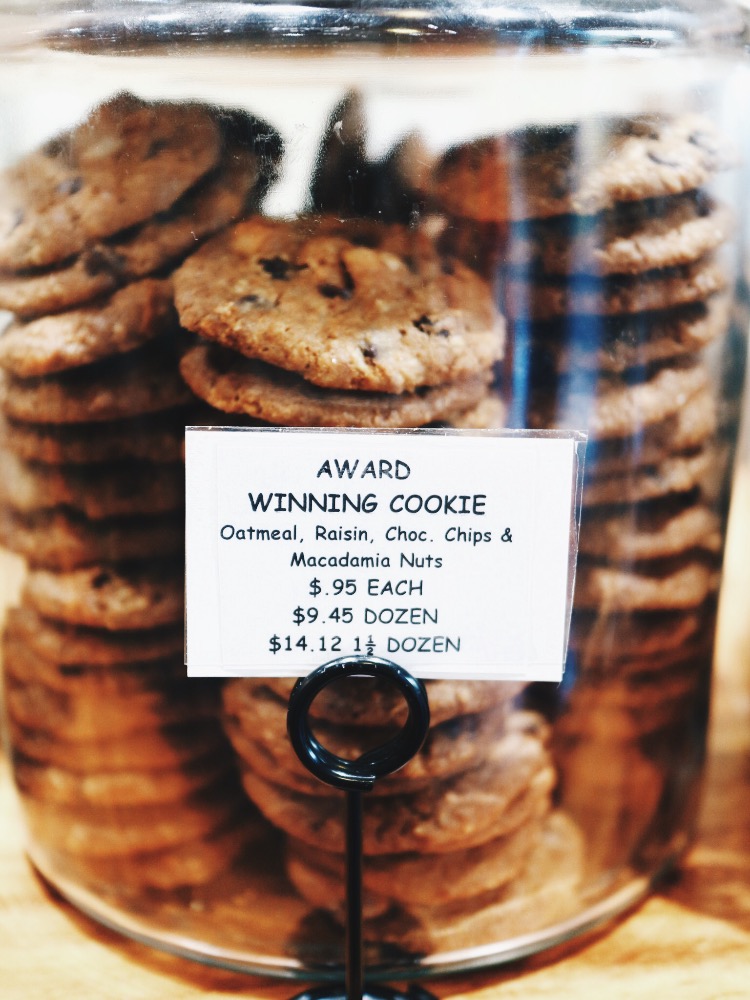 AWARD
WINNING COOKIE
Oatmeal, Raisin, Choc. Chips &
Macadamia Nuts
$.95 EACH
$9.45 DOZEN
$14.12 1½ DOZEN